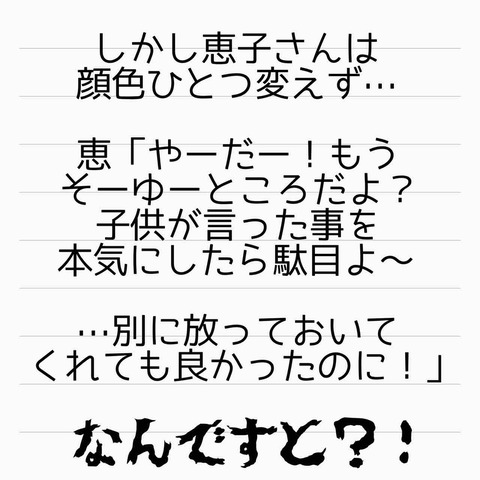 しかし恵子さんは
顔色ひとつ変えず…
恵「やーだー！もう
そーゆーところだよ？
子供が言った事を
本気にしたら駄目よ～
…別に放っておいて
くれても良かったのに！」
なんですと？！